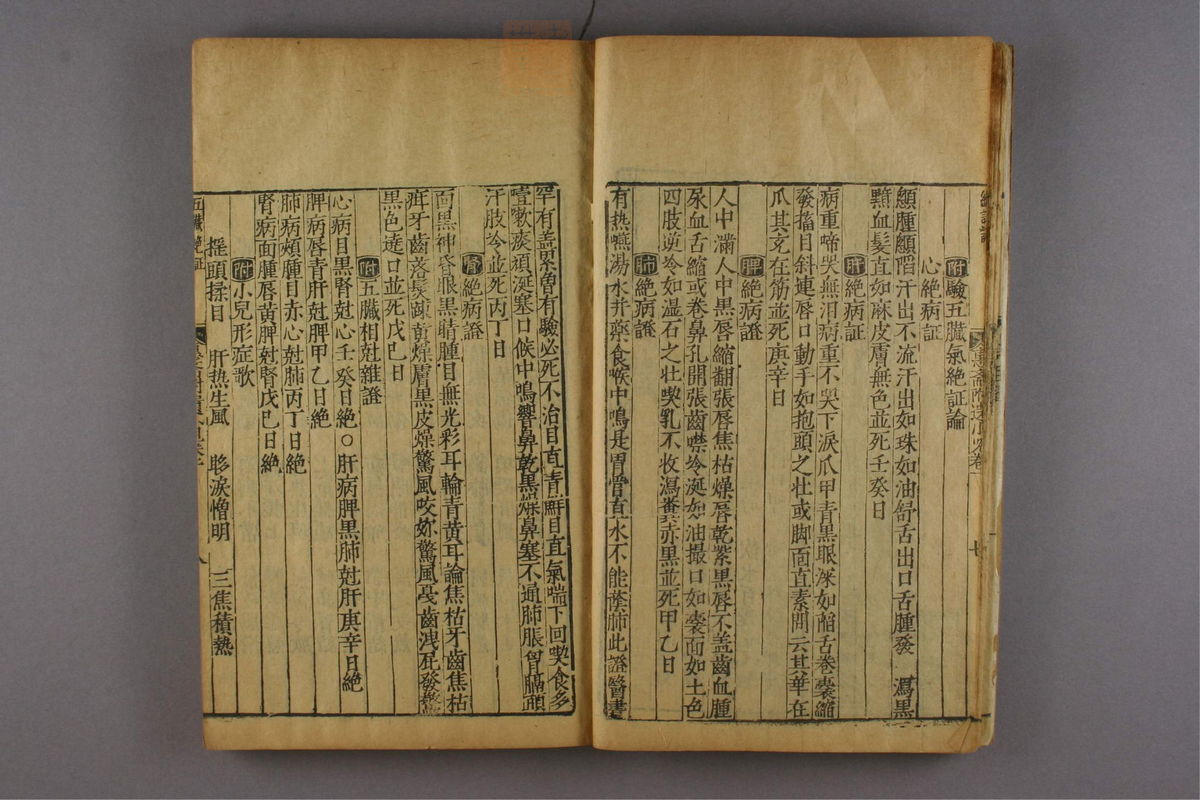 附驗五臟氣絕証論
心絕病証
顖腫顖陷汗出不流汗出如珠如油舒舌出口舌腫發 瀉黑
黯血髮直如麻皮膚無色並死壬癸日
肝絕病証
病重啼哭無泪病重不哭下淚爪甲青黑眼深如陷舌卷囊縮
發搐目斜連唇口動手如抱頭之壮或脚面直素問云其華在
爪其充在筋並死庚辛日
脾絕病證
人中滿人中黑唇縮翻張唇焦枯燥唇乾紫黑唇不盖齒血腫
尿血舌縮或卷鼻孔開張齒噤冷涎如油撮口如囊面如土色
四肢逆冷如温石之壮喫乳不收瀉糞赤黑並死甲乙日
肺絕病證
有热嚥湯水并藥食喉中鳴是胃管直水不能蔭肺此證醫書
罕有盖累曾有驗必死不治目直青鮮目直氣喘下回喫食多
噎嗽痰頑涎塞口候中鳴響鼻乾黑燥鼻塞不通肺脹胷膈頭
汗肢冷並死丙丁日
腎絕病證
面黑神昏眼黑睛腫目無光彩耳輪青黄耳論焦枯牙齒焦枯
疳牙齒落髮疎黄燥膚黑皮燥驚風咬妳驚風戛齒洩屁發
黑色遶口並死戊巳日
附五臓相尅雜證
心病目黑腎尅心壬癸日絕○肝病脾黑肺尅肝庚辛日絕
脾病唇青肝尅脾甲乙日絕
肺病頰腫目赤心尅肺丙丁日絕
腎病面腫唇黄脾尅腎戊巳日絕
附小兒形症歌
揺頭揉目 肝热生風 眵淚憎明 三焦積熱
五臓絶証
八